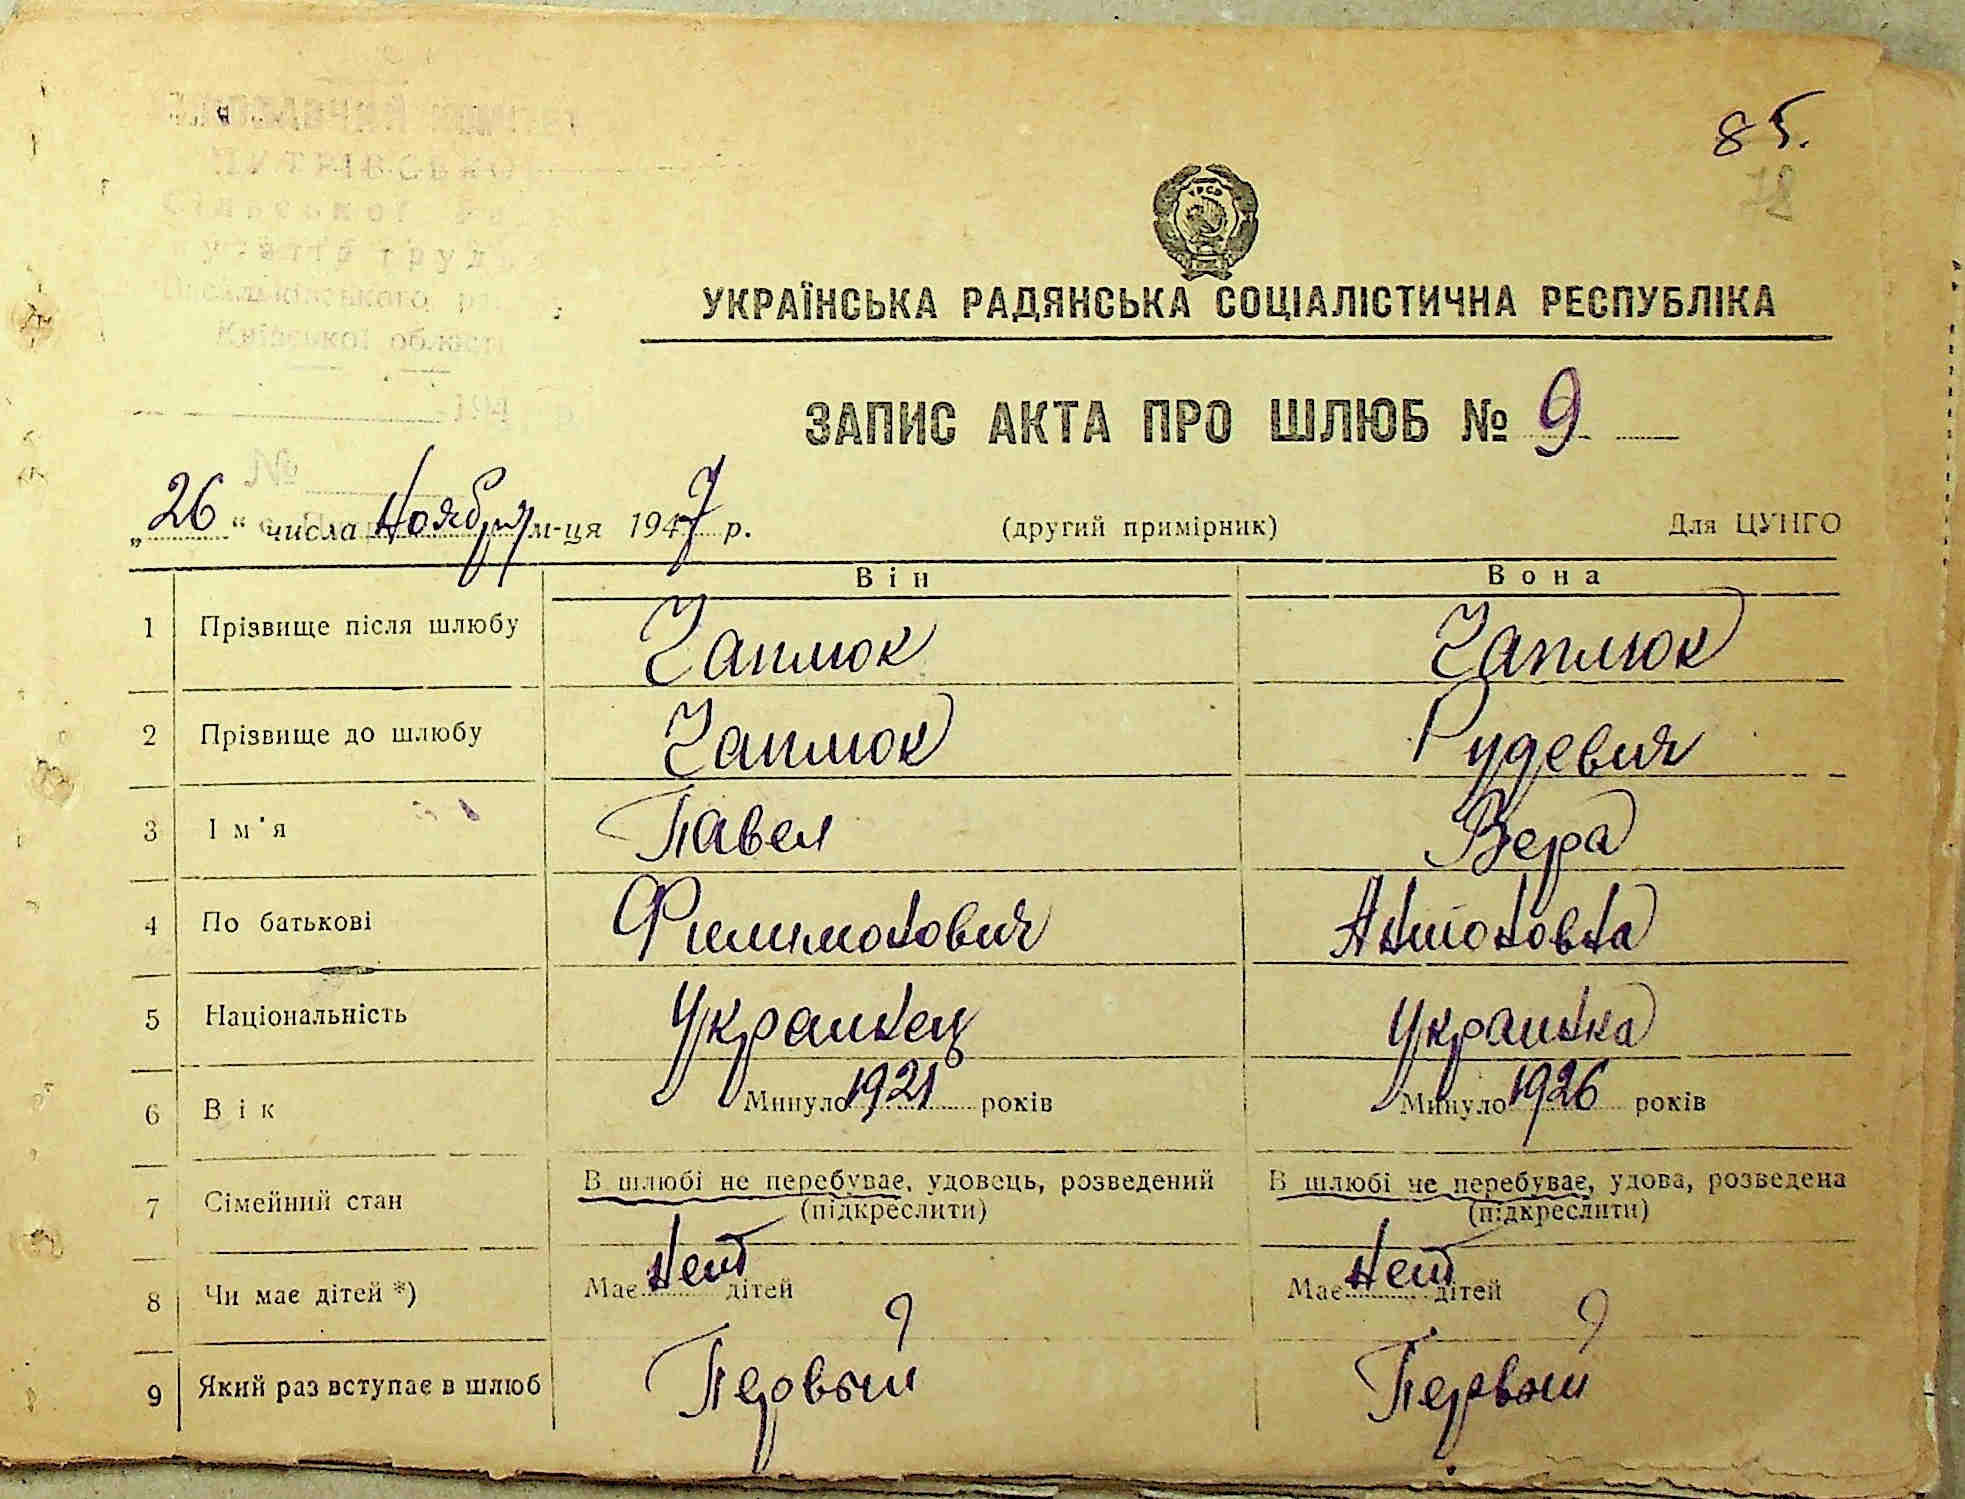 85.
УРСР
УКРАЇНСЬКА РАДЯНСЬКА СОЦІАЛІСТИЧНА РЕСПУБЛІКА
ЗАПИС АКТА ПРО ШЛЮБ № 9
№
„26“ числа Ноября м-ця 1947 р. (другий примірник) Для ЦУНГО
Він Вона
1 Прізвище після шлюбу Чаплюк Чаплюк
2 Прізвище до шлюбу Чаплюк Рудевич
3 Ім'я Павел Вера
4 По батькові Филимонович Антоновна
5 Національність Украинец Украинка
6 Вік Минуло 1921 років Минуло 1926 років
7 Сімейний стан В шлюбі не перебуває, удовець, розведений В шлюбі не перебуває, удова, розведена
(підкреслити) (підкреслити)
8 Чи має дітей *) Має Нет дітей Має Нет дітей
9 Який раз вступає в шлюб Первый Первый